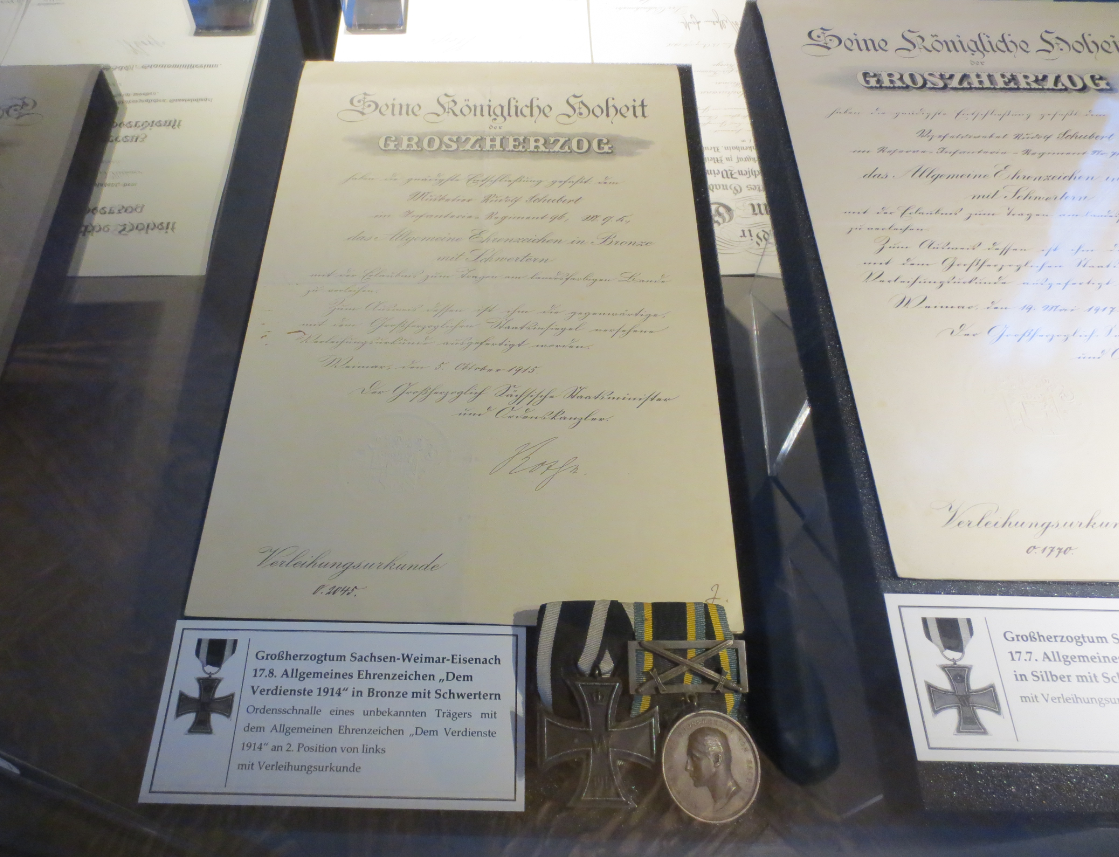 Seine Königliche Hoheit
der
GROSZHERZOG
haben die gnädigste Entschließung gefaßt dem
Musketier Rudolf Schubert
im Infanterie-Regiment 96,
das Allgemeine Ehrenzeichen in Bronze
mit Schwertern
mit der Erlaubnis zum Tragen am landesfarbigen Bande
zu verleihen.
Zum Ausweis dessen ist ihm die gegenwärtige,
mit dem Großherzoglichen Staatssiegel versehene
Verleihungsurkunde ausgefertigt worden.
Weimar, den 5. Oktober 1915
Der Großherzoglich Sächsische Staatsminister
und Ordenskanzler.
Rothe.
Verleihungsurkunde
O. 2045.
Großherzogtum Sachsen-Weimar-Eisenach
17.8. Allgemeines Ehrenzeichen „Dem
Verdienste 1914“ in Bronze mit Schwertern
Ordensschnalle eines unbekannten Trägers mit
dem Allgemeinen Ehrenzeichen „Dem Verdienste
1914“ an 2. Position von links
mit Verleihungsurkunde
Seine Königliche Hohei
der
GROSZHERZOG
haben die gnädigste Entschließung gefaßt dem
Vizefeldwebel Rudolf Schubert
im Reserve-Infanterie-Regiment
das Allgemeine Ehrenzeichen in
mit Schwertern
mit der Erlaubnis zum Tragen am
zu verleihen
Zum Ausweis dessen ist ihm
mit dem Großherzoglichen Staats
Verleihungsurkunde ausgefertigt
Weimar, den 14. Mai 1917
Der Großherzoglich
und
Verleihungsurkun
O. 1770.
Großherzogtum S
17.7. Allgemeines
in Silber mit Sch
mit Verleihungsu